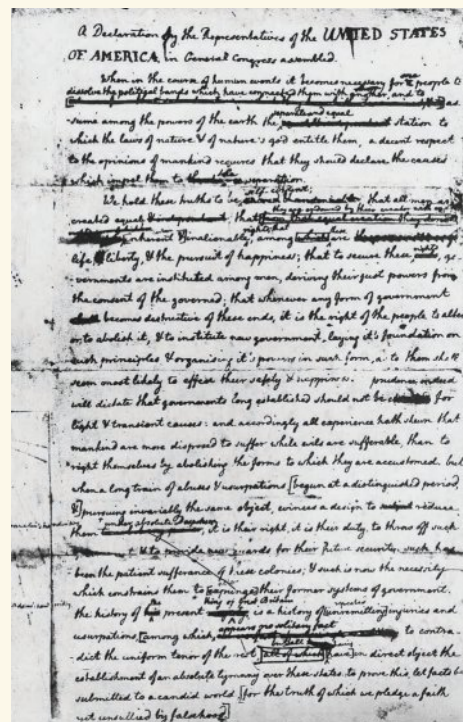 A Declaration by the Representatives of the UNITED STATES
OF AMERICA, in General Congress assembled.
When in the course of human events it becomes necessary for one people to
dissolve the political bands which have connected them with another, and to
as
separate and equal
sume among the powers of the earth the station to
which the laws of nature & of nature's god entitle them, a decent respect
to the opinions of mankind requires that they should declare the causes
which impel them to the separation.
self-evident;
We hold these truths to be that all men are
they are endowed by their creator with
created equal & independent; that from that equal creation they derive
rights; that these
inherent & inalienable, among which are
life, & liberty, & the pursuit of happiness; that to secure these rights, go-
vernments are instituted among men, deriving their just powers from
the consent of the governed; that whenever any form of government
becomes destructive of these ends, it is the right of the people to alter
or to abolish it, & to institute new government, laying it's foundation on
such principles & organising it's powers in such form, as to them shall
seem most likely to effect their safety & happiness. prudence indeed
will dictate that governments long established should not be changed for
light & transient causes: and accordingly all experience hath shewn that
mankind are more disposed to suffer while evils are sufferable, than to
right themselves by abolishing the forms to which they are accustomed. but
when a long train of abuses & usurpations [begun at a distinguished period,
&] pursuing invariably the same object, evinces a design to reduce
under absolute Despotism
them it is their right, it is their duty, to throw off such
& to provide new guards for their future security. such has
been the patient sufferance of these colonies; & such is now the necessity
which constrains them to [expunge] their former systems of government.
the King of Great Britain repeated
the history of present is a history of [unremitting] injuries and
appears no solitary fact
usurpations, [among which, to contra-
in direct having
dict the uniform tenor of the rest [all of which] [have] in direct object the
establishment of an absolute tyranny over these states. to prove this, let facts be
submitted to a candid world [for the truth of which we pledge a faith
yet unsullied by falsehood]